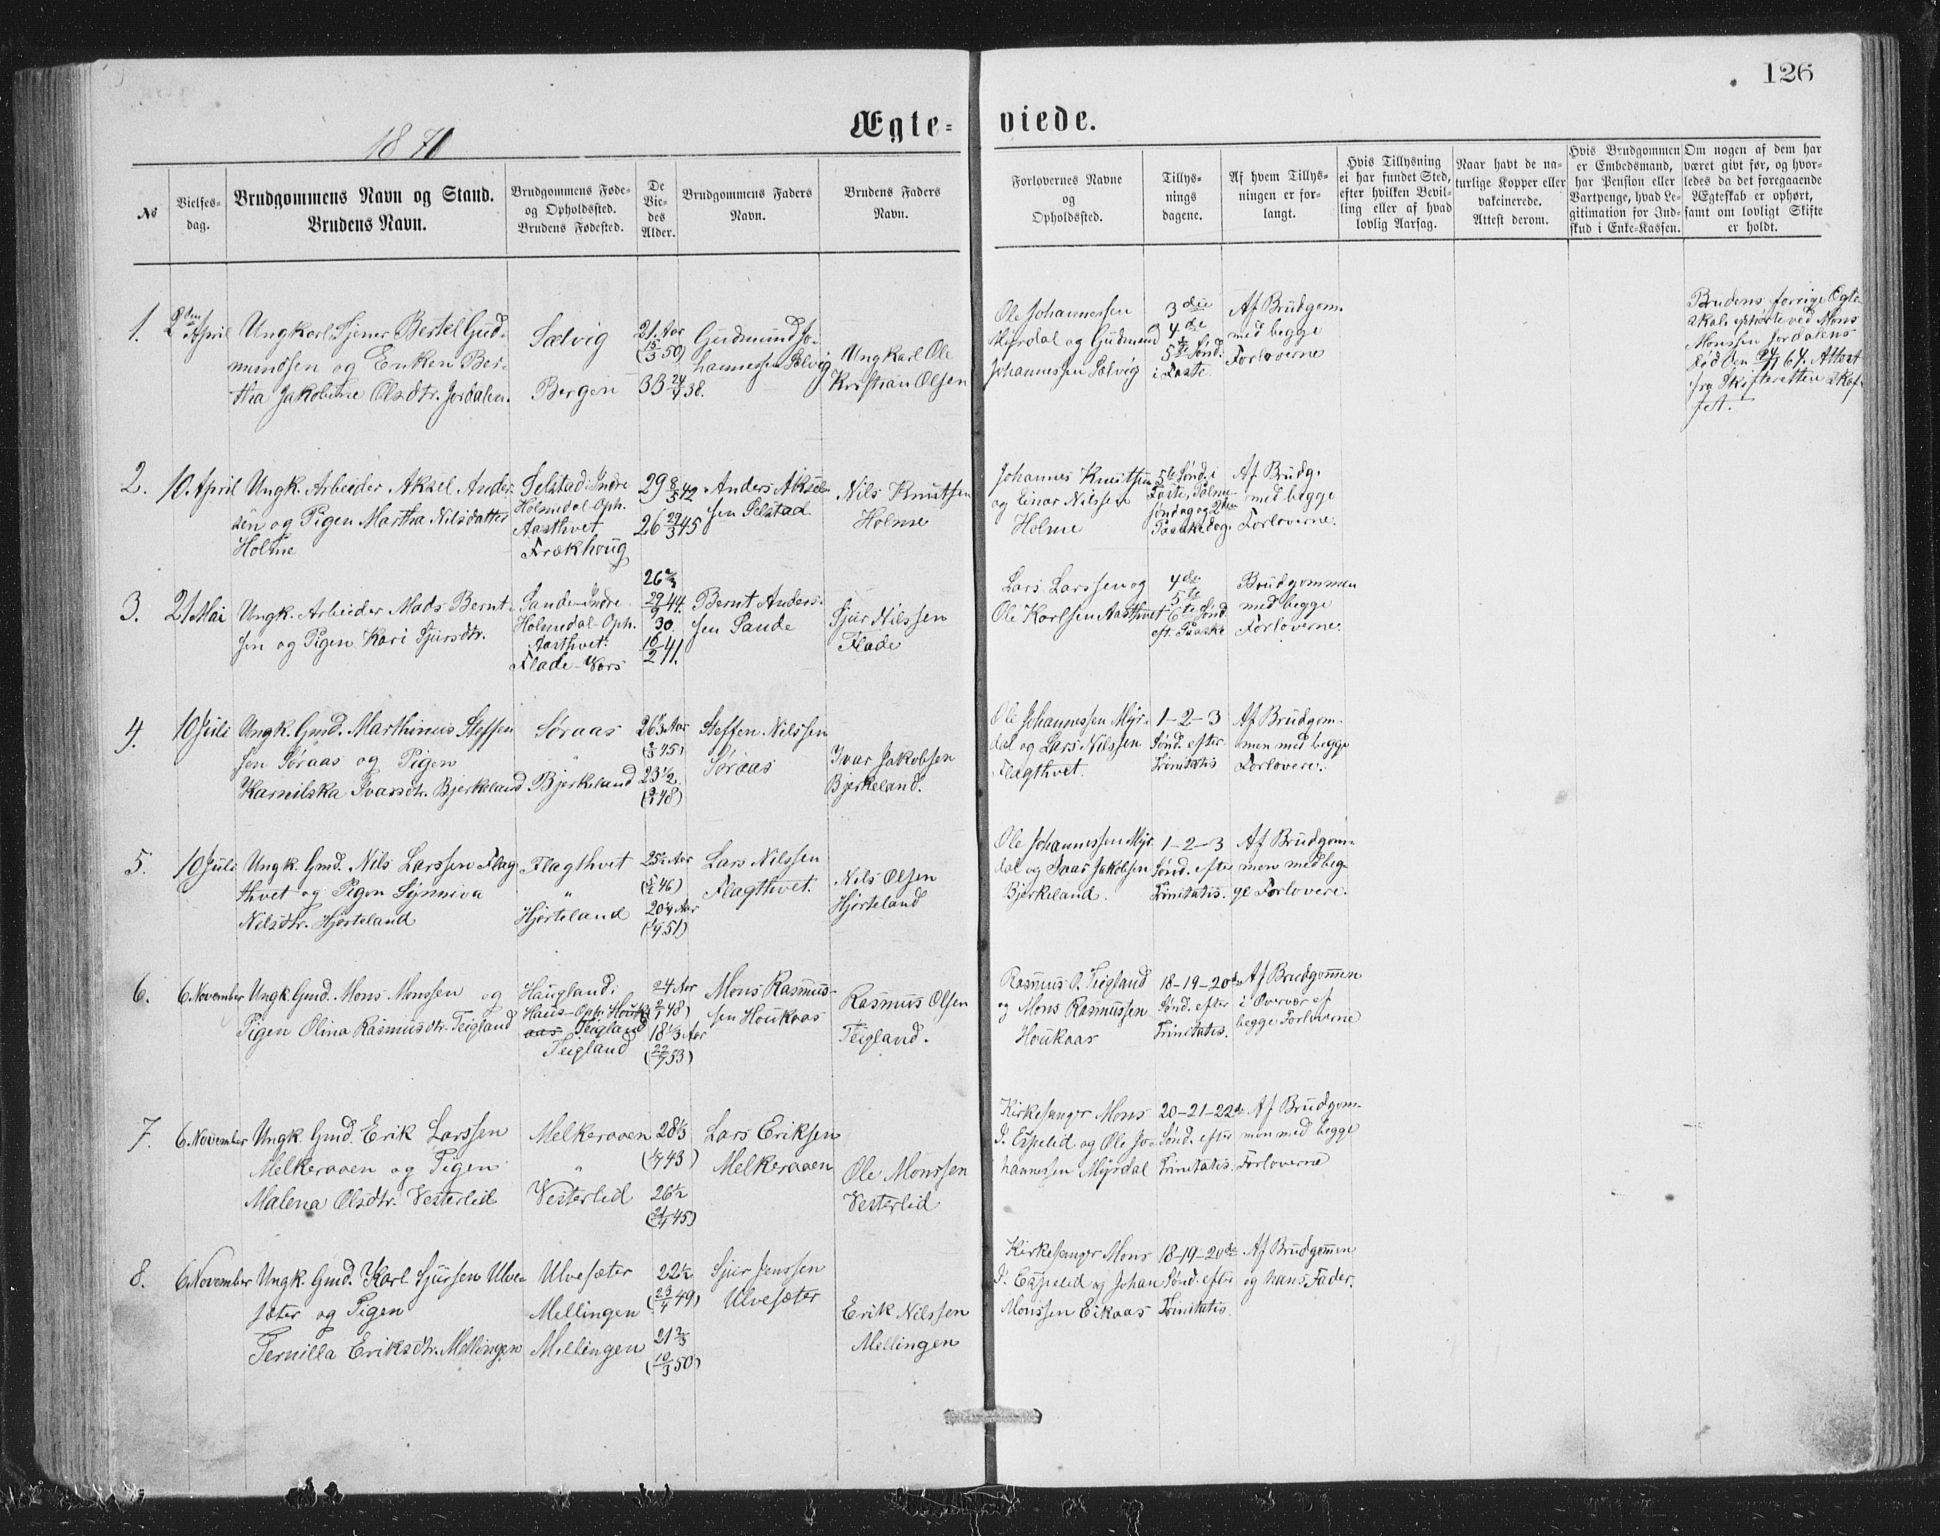 126
Ægte-viede.
1871
No
Vielses-
dag.
Brudgommens Navn og Stand.
Brudens Navn.
Brudgommens Føde-
og Opholdssted.
Brudens Fødested.
De
Vie-
des
Alder.
Brudgommens Faders
Navn.
Brudens Faders
Navn.
Forlovernes Navne
og
Opholdssted.
Tillys-
nings
dagene.
Af hvem Tillys-
ningen er for-
langt.
Hvis Tillysning
ei har fundet Sted,
efter hvilken Bevil-
ling eller af hvad
lovlig Aarsag.
Naar havt de na-
turlige Kopper eller
vakcinerede.
Attest derom.
Hvis Brudgommen
er Embedsmand,
har Pension eller
Vartpenge, hvad Le-
gitimation for Ind-
skud i Enke-Kassen.
Om nogen af dem har
været givt før, og hvor-
ledes da det foregaaende
Ægteskab er ophørt,
samt om lovligt Skifte
er holdt.
1.
2den April
Ungkarl Tjener Bertel Gud-
mundsen og Enken Ber-
tha Jakobine Olsdtr. Jordalen.
Sælvig
Bergen
21 Aar
(15/3 50)
33 24/7 38.
Gudmund Jo-
hannessen Sælvig
Ungkarl Ole
Kristian Olsen
Ole Johannessen
Myrdal og Gudmund
Johannessen Sælvig
3die
4de
5te Sønd.
i Faste.
Af Brudgom
med begge
Forloverne
Brudens forrige Egte-
skab ophørte ved Mons
Monssen Jordalens
Død den 24/1 64. Attest
fra Skifteretten skaf-
fet.
2.
10 April
Ungk. Arbeider Aksel Ander-
sen og Pigen Martha Nilsdatter
Holme
Selstad Indre
Holmedal Oph.
Aasthvet
Frækhoug
29 8/5 42
26 29/3 45
Anders Aksel-
sen Selstad
Nils Knutsen
Holme
Johannes Knutsen
og Einar Nilssen
Holme
5te Sønd. i
Faste, Palme-
søndag og 2den
Paaskedag
Af Brudg.
med begge
Forloverne.
3.
21 Mai
Ungk. Arbeider Mads Bernt-
sen og Pigen Kari Sjursdtr.
Sande-Indre
Holmedal Oph.
Aasthvet.
Flade-Vors
26 2/3
29/9 44.
30.
16/2 41.
Bernt Anders-
sen Sande
Sjur Nilssen
Flade
Lars Larssen og
Ole Karlsen Aasthvet
4de
5te
6te Sønd.
eft. Paaske
Brudgommen
med begge
Forloverne.
4.
10 Juli
Ungk. Gmd. Marthinus Steffen-
sen Søraas og Pigen
Karnilska Ivarsdtr. Bjerkeland
Søraas
"
Bjerkeland
26 1/3 Aar
23 1/2
Steffen Nilssen
Søraas
Ivar Jakobsen
Bjerkeland.
Ole Johannessen Myr-
dal og Lars Nilssen
Flagthvet.
1-2-3
Sønd. efter
Trinitatis
Af Brudgom-
men med begge
Forlovere.
5.
10 Juli
Ungk. Gmd. Nils Larssen Flag-
thvet og Pigen Synneva
Nilsdtr. Hjorteland
Flagthvet
"
Hjorteland
20 1/4 Aar
Lars Nilssen
Flagthvet.
Nils Olsen
Hjorteland
Ole Johannessen Myr-
dal og Ivar Jakobsen
Bjerkeland.
1-2-3
Sønd. efter
Trinitatis.
Af Brudgom-
men med beg-
ge Forlovere.
6.
6 November
Ungk. Gmd. Mons Monssen og
Pigen Olina Rasmusdtr. Teigland
Haugland i
Haus-Oph. Houk-
aas Teigland
Teigland
24 Aar
18 1/3 Aar
(22/7 53)
Mons Rasmus-
sen Houkaas
Rasmus Olsen
Teigland.
Rasmus O. Teigland
og Mons Rasmussen
Houkaas
18-19-20de
Sønd. efter
Trinitatis.
Af Brudgommen
i Overvær af
begge Forloverne
7.
6 November
Ungk. Gmd. Erik Larssen
Melkeraaen og Pigen
Malena Olsdtr. Vesterlid
Melkeraaen
"
Vesterlid
28 1/3
26 1/2
Lars Eriksen
Melkeraaen
Ole Monssen
Vesterlid
Kirkesanger Mons
J. Espelid og Ole Jo-
hannessen Myrdal
20-21-22de
Sønd. efter
Trinitatis.
Af Brudgom-
men med begge
Forloverne
8.
6 November
Ungk. Gmd. Karl Sjursen Ulve-
sæter og Pigen
Pernilla Eriksdtr. Mellingen
Ulvesæter
Mellingen
Mellingen
22 1/2
(23/4 49)
21 2/3
(10/3 50)
Sjur Jenssen
Ulvesæter
Erik Nilssen
Mellingen
Kirkesanger Mons
J. Espelid og Johan
Monssen Eikaas
18-19-20de
Sønd. efter
Trinitatis.
Af Brudgommen
og hans Fader.